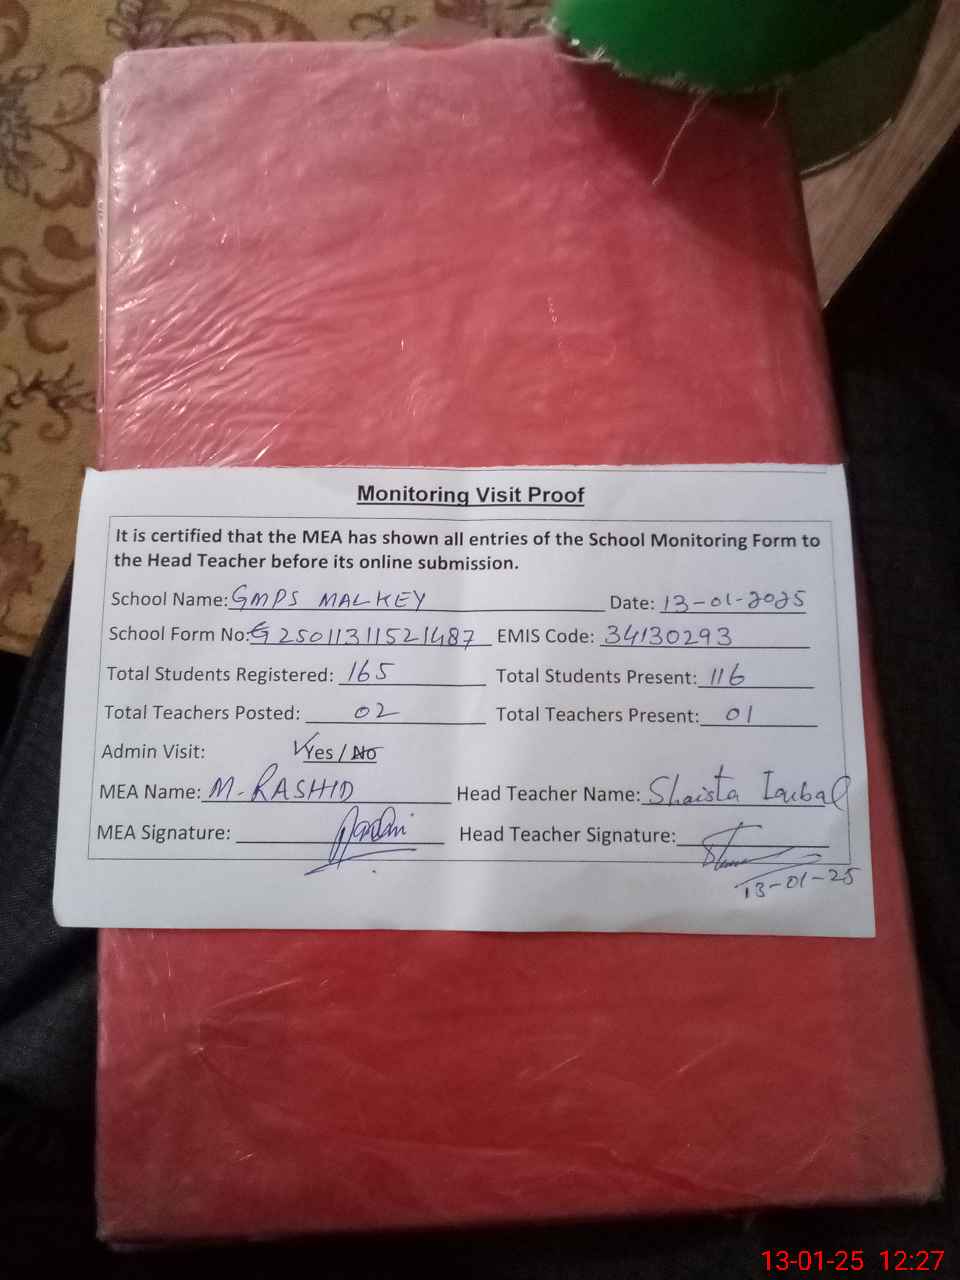 Monitoring Visit Proof
It is certified that the MEA has shown all entries of the School Monitoring Form to
the Head Teacher before its online submission.
School Name: GMPS MALKEY Date: 13-01-2025
School Form No: G25011311521487 EMIS Code: 34130293
Total Students Registered: 165 Total Students Present: 116
Total Teachers Posted: 02 Total Teachers Present: 01
Admin Visit: Yes / No
MEA Name: M-RASHID Head Teacher Name: Shaista Iqubal
MEA Signature: Head Teacher Signature:
13-01-25
13-01-25 12:27